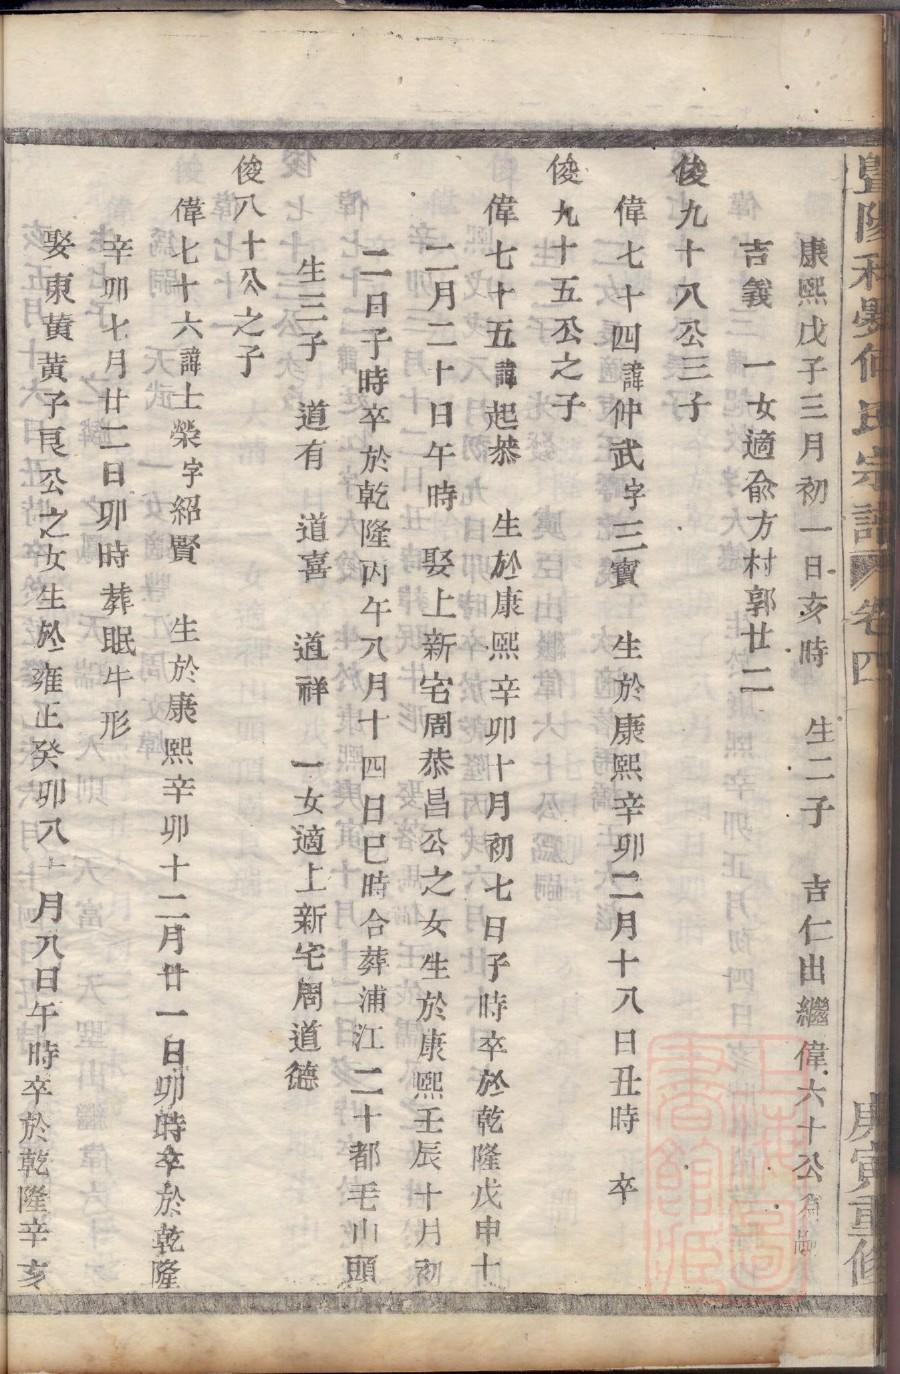 暨陽孝義何氏宗譜 卷四 庚寅重修
康熙戊子三月初一日亥時 生二子 吉仁出繼偉六十公為嗣
吉義 一女適俞方村郭廿二
俊九十八公三子
偉七十四諱仲武字三寶 生於康熙辛卯二月十八日丑時 卒
俊九十五公之子
偉七十五諱起恭 生於康熙辛卯十月初七日子時卒於乾隆戊申十
二月二十日午時 娶上新宅周恭昌公之女生於康熙壬辰十月初
二日子時卒於乾隆丙午八月十四日巳時合葬浦江二十都毛山頭
生三子 道有 道喜 道祥 一女適上新宅周道德
俊八十公之子
偉七十六諱士榮字紹賢 生於康熙辛卯十二月廿一日卯時卒於乾隆
辛卯七月廿二日卯時葬眠牛形
娶東蓂黃子良公之女生於雍正癸卯八月八日午時卒於乾隆辛亥